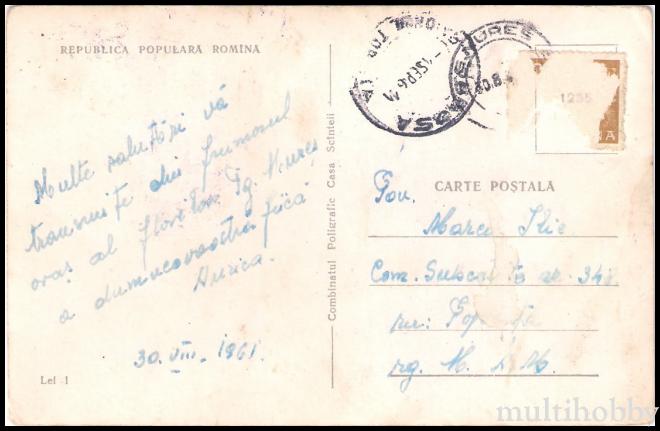 REPUBLICA POPULARA ROMÎNA
Multe salutări vă
transmite din frumosul
oraș al florilor Tg. Mureș
a dumneavoastră fiică
Aurica.
30. VIII. 1961.
Lei 1
Combinatul Poligrafic Casa Scînteii
MUREȘ
30.8.
1235
CARTE POȘTALĂ
Tov.
Marcu Ilie
Com. Suseni nr. 348
rai: Toplița
rg. M. A. M.
multihobby